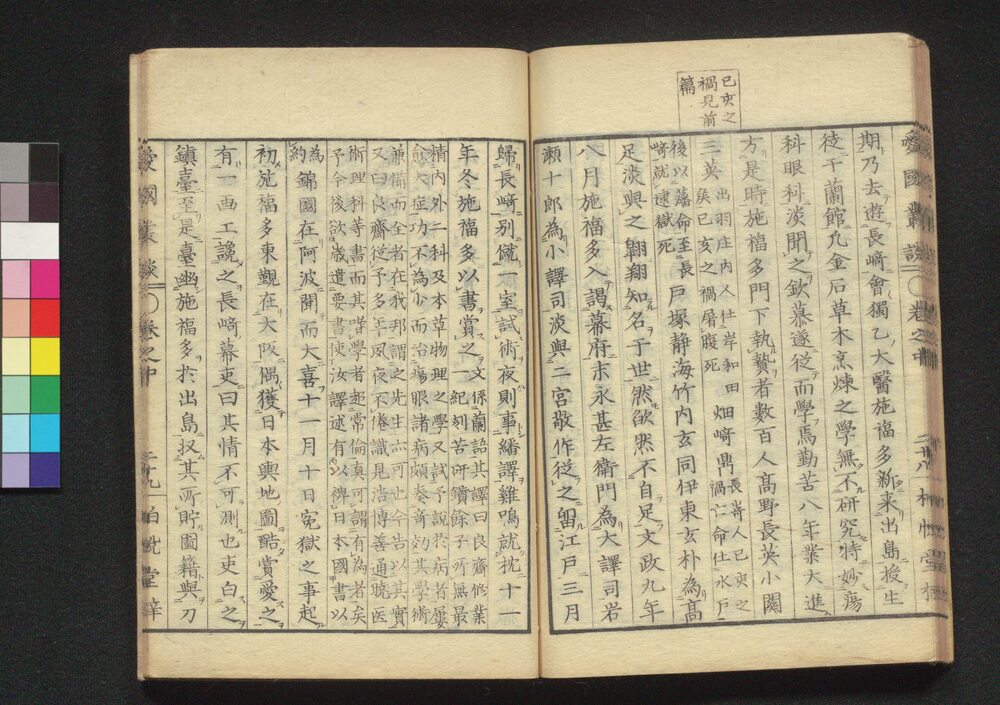 己亥之
禍見前
篇
愛國叢談 ○卷之中 二十八 柏悅堂梓
期乃去遊長崎會獨乙大醫施福多新来出島授生
徒于蘭館凢金石草木烹煉之學無不研究特妙瘍
科眼科淡聞之欽慕遂從而學焉勤苦八年業大進
方是時施福多門下執贄者數百人高野長英小關
三英出羽庄内人仕岸和田矦己亥之禍屠腹死畑崎鼎長崎人己亥之禍亡命仕水戸
後以落命至長崎就逮獄死戸塚静海竹内玄同伊東玄朴為高
足淡與之翺翔知名于世然欿然不自足文政九年
八月施福多入謁幕府末永甚左衞門為大譯司岩
瀬十郎為小譯司淡與二宮敬作從之留江戸三月
歸長崎別僦一室試術夜則事繙譯雞鳴就枕十一
年冬施福多以書賞之文係蘭語其譯曰良齋修業
一紀刻苦研鑽餘子所無最
精内外二科及本草物理之學又試予説於病者屢
愈大症功不為少而治瘍眼諸病頗奏奇効其學術
兼備而全者在我邦謂之先生亦可也今告以其實
又曰良齋從予多年夙夜不倦識見浩博善通曉医
術理科等書而其嗜學者超常倫真可謂有為者矣
予今後欲歳遣要書使汝譯述有以裨日本國書以
為約錦國在阿波聞而大喜十一月十日寃獄之事起
初施福多東觀在大阪偶獲日本輿地圖酷賞愛之
有一画工讒之長崎幕吏曰其情不可測也吏白之
鎮臺至是臺幽施福多於出島収其所貯圖籍與刀
愛國叢談 ○卷之中 二十九 柏悅堂梓